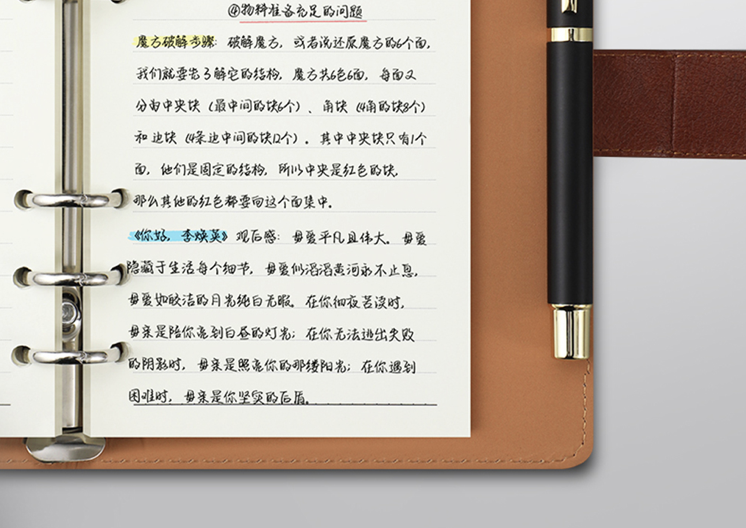 ④物料准备充足的问题
魔方破解步骤：破解魔方，或者说还原魔方的6个面，
我们就要先了解它的结构，魔方共6色6面，每面又
分为中央块（最中间的块6个）、角块（4角的块8个）
和边块（4条边中间的块12个）。其中中央块只有1个
面，他们是固定的结构，所以中央是红色的块，
那么其他的红色都要向这个面集中。
《你好，李焕英》观后感：母爱平凡且伟大。母爱
隐藏于生活每个细节，母爱似滔滔黄河永不止息，
母爱如皎洁的月光纯白无暇。在你彻夜苦读时，
母亲是陪你亮到白昼的灯光；在你无法逃出失败
的阴影时，母亲是照亮你的那缕阳光；在你遇到
困难时，母亲是你坚实的后盾。